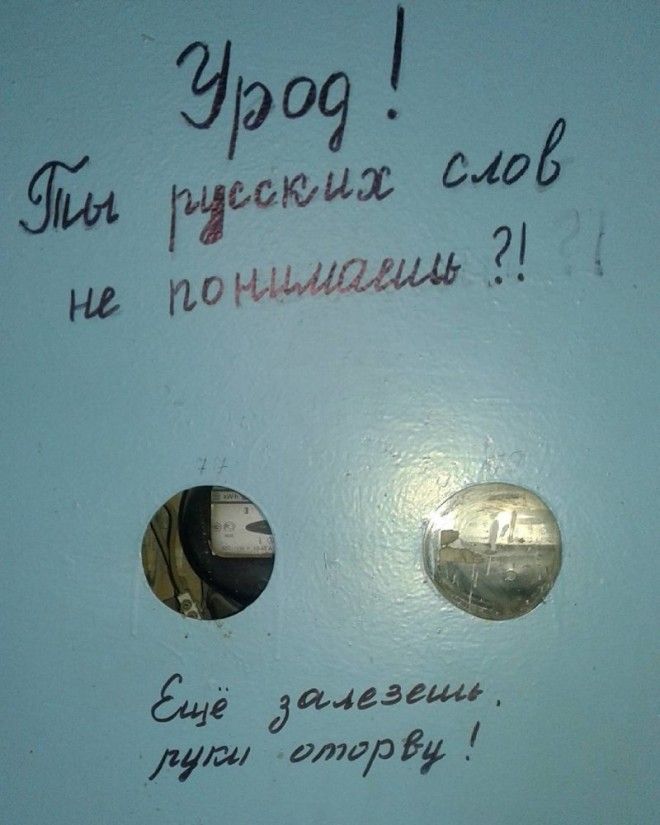 Урод!
Ты русских слов
не понимаешь?!
77
kWh
Ещё залезешь,
руки оторву!